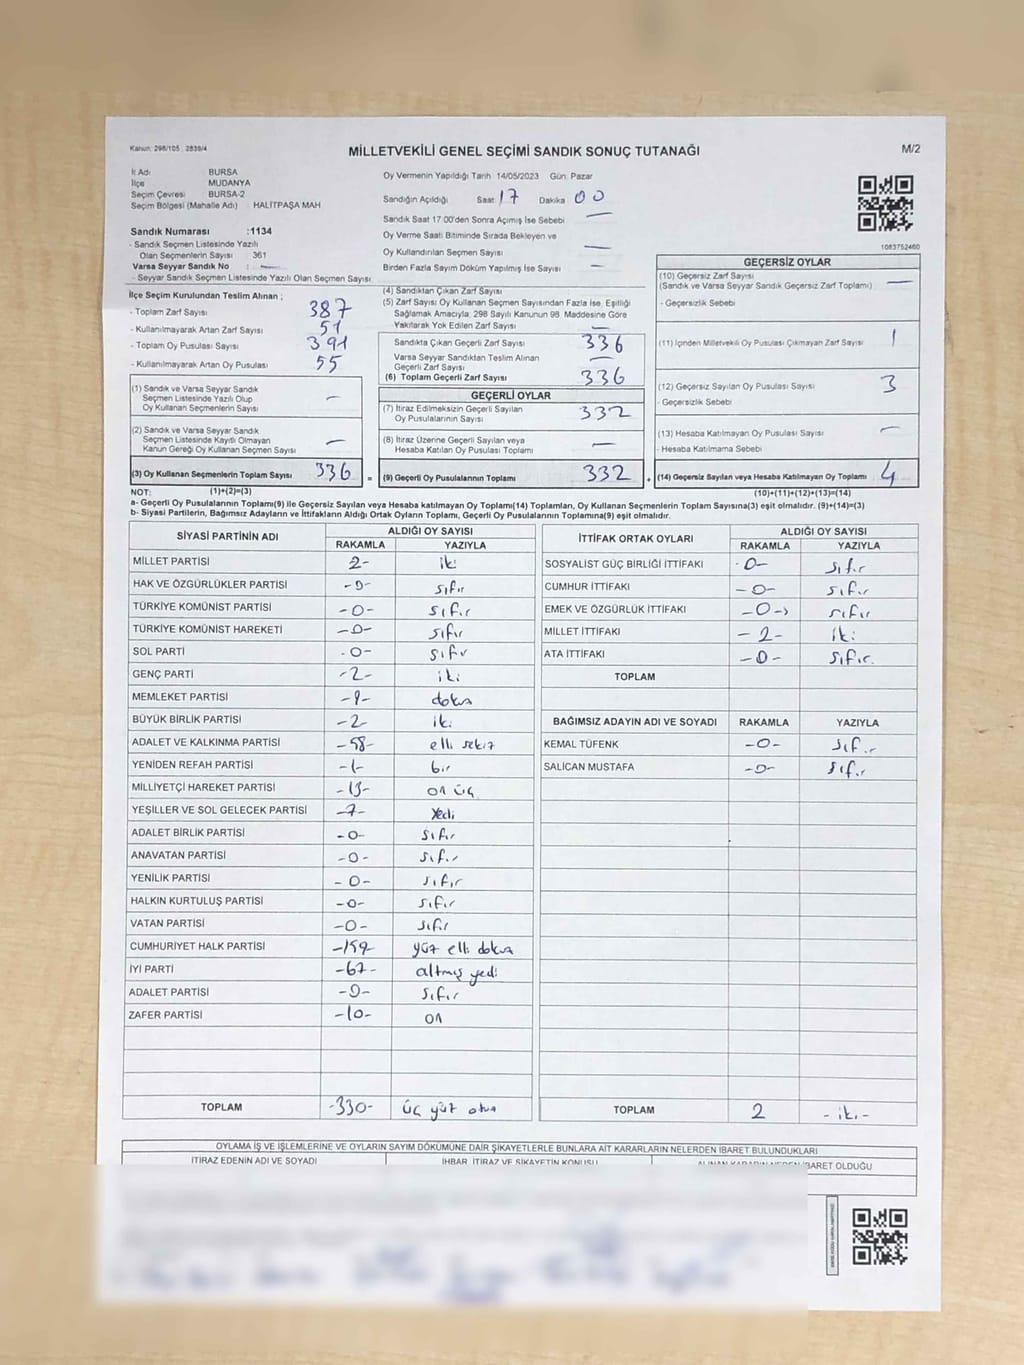 Kanun: 298/105 : 2839/4
MİLLETVEKİLİ GENEL SEÇİMİ SANDIK SONUÇ TUTANAĞI
M/2
İl Adı BURSA
İlçe MUDANYA
Seçim Çevresi BURSA-2
Seçim Bölgesi (Mahalle Adı) : HALİTPAŞA MAH
Sandık Numarası :1134
- Sandık Seçmen Listesinde Yazılı
Olan Seçmenlerin Sayısı 361
Varsa Seyyar Sandık No : —
- Seyyar Sandık Seçmen Listesinde Yazılı Olan Seçmen Sayısı
Oy Vermenin Yapıldığı Tarih 14/05/2023 Gün: Pazar
Sandığın Açıldığı Saat 17 Dakika 00
Sandık Saat 17:00'den Sonra Açımış İse Sebebi —
Oy Verme Saati Bitiminde Sırada Bekleyen ve
Oy Kullandırılan Seçmen Sayısı —
Birden Fazla Sayım Döküm Yapılmış İse Sayısı —
1083752460
İlçe Seçim Kurulundan Teslim Alınan ;
- Toplam Zarf Sayısı 387
- Kullanılmayarak Artan Zarf Sayısı 51
- Toplam Oy Pusulası Sayısı 391
- Kullanılmayarak Artan Oy Pusulası 55
(1) Sandık ve Varsa Seyyar Sandık
Seçmen Listesinde Yazılı Olup
Oy Kullanan Seçmenlerin Sayısı —
(2) Sandık ve Varsa Seyyar Sandık
Seçmen Listesinde Kayıtlı Olmayan
Kanun Gereği Oy Kullanan Seçmen Sayısı —
(3) Oy Kullanan Seçmenlerin Toplam Sayısı 336 =
(4) Sandıktan Çıkan Zarf Sayısı
(5) Zarf Sayısı Oy Kullanan Seçmen Sayısından Fazla İse, Eşitliği
Sağlamak Amacıyla; 298 Sayılı Kanunun 98. Maddesine Göre
Yakılarak Yok Edilen Zarf Sayısı —
Sandıkta Çıkan Geçerli Zarf Sayısı 336
Varsa Seyyar Sandıktan Teslim Alınan
Geçerli Zarf Sayısı —
(6) Toplam Geçerli Zarf Sayısı 336
GEÇERLİ OYLAR
(7) İtiraz Edilmeksizin Geçerli Sayılan
Oy Pusulalarının Sayısı 332
(8) İtiraz Üzerine Geçerli Sayılan veya
Hesaba Katılan Oy Pusulası Toplamı —
(9) Geçerli Oy Pusulalarının Toplamı 332 +
GEÇERSİZ OYLAR
(10) Geçersiz Zarf Sayısı
(Sandık ve Varsa Seyyar Sandık Geçersiz Zarf Toplamı) —
- Geçersizlik Sebebi
(11) İçinden Milletvekili Oy Pusulası Çıkmayan Zarf Sayısı 1
(12) Geçersiz Sayılan Oy Pusulası Sayısı 3
- Geçersizlik Sebebi
(13) Hesaba Katılmayan Oy Pusulası Sayısı —
- Hesaba Katılmama Sebebi
(14) Geçersiz Sayılan veya Hesaba Katılmayan Oy Toplamı 4
NOT: (1)+(2)=(3) (10)+(11)+(12)+(13)=(14)
a- Geçerli Oy Pusulalarının Toplamı(9) ile Geçersiz Sayılan veya Hesaba katılmayan Oy Toplamı(14) Toplamları, Oy Kullanan Seçmenlerin Toplam Sayısına(3) eşit olmalıdır. (9)+(14)=(3)
b- Siyasi Partilerin, Bağımsız Adayların ve İttifakların Aldığı Ortak Oyların Toplamı, Geçerli Oy Pusulalarının Toplamına(9) eşit olmalıdır.
SİYASİ PARTİNİN ADI ALDIĞI OY SAYISI
RAKAMLA YAZIYLA
MİLLET PARTİSİ 2- iki
HAK VE ÖZGÜRLÜKLER PARTİSİ -0- sıfır
TÜRKİYE KOMÜNİST PARTİSİ -0- sıfır
TÜRKİYE KOMÜNİST HAREKETİ -0- sıfır
SOL PARTİ -0- sıfır
GENÇ PARTİ -2- iki
MEMLEKET PARTİSİ -9- dokuz
BÜYÜK BİRLİK PARTİSİ -2 iki
ADALET VE KALKINMA PARTİSİ -58- elli sekiz
YENİDEN REFAH PARTİSİ -1- bir
MİLLİYETÇİ HAREKET PARTİSİ -13- on üç
YEŞİLLER VE SOL GELECEK PARTİSİ -7- yedi
ADALET BİRLİK PARTİSİ -0- sıfır
ANAVATAN PARTİSİ -0- sıfır
YENİLİK PARTİSİ -0- sıfır
HALKIN KURTULUŞ PARTİSİ -0- sıfır
VATAN PARTİSİ -0- sıfır
CUMHURİYET HALK PARTİSİ -159- yüz elli dokuz
İYİ PARTİ -67- altmış yedi
ADALET PARTİSİ -0- sıfır
ZAFER PARTİSİ -10- on
TOPLAM -330- üç yüz otuz
İTTİFAK ORTAK OYLARI ALDIĞI OY SAYISI
RAKAMLA YAZIYLA
SOSYALİST GÜÇ BİRLİĞİ İTTİFAKI -0- sıfır
CUMHUR İTTİFAKI -0- sıfır
EMEK VE ÖZGÜRLÜK İTTİFAKI -0- sıfır
MİLLET İTTİFAKI -2- iki
ATA İTTİFAKI -0- sıfır.
TOPLAM
BAĞIMSIZ ADAYIN ADI VE SOYADI RAKAMLA YAZIYLA
KEMAL TÜFENK -0- sıfır
SALİCAN MUSTAFA -0- sıfır
TOPLAM 2 -iki-
OYLAMA İŞ VE İŞLEMLERİNE VE OYLARIN SAYIM DÖKÜMÜNE DAİR ŞİKAYETLERLE BUNLARA AİT KARARLARIN NELERDEN İBARET BULUNDUKLARI
İTİRAZ EDENİN ADI VE SOYADI İHBAR, İTİRAZ VE ŞİKAYETİN KONUSU ALINAN KARARIN NEDEN İBARET OLDUĞU